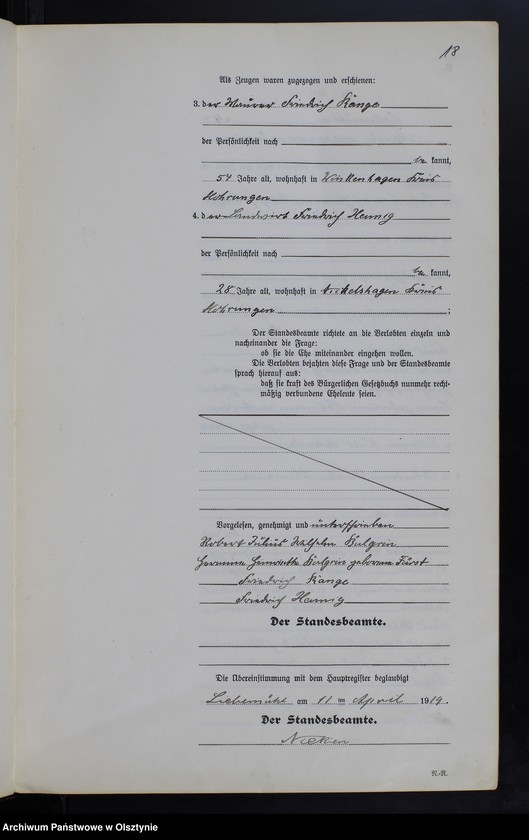 18
Als Zeugen waren zugezogen und erschienen:
3. der Maurer Friedrich Känge
der Persönlichkeit nach
be kannt,
54 Jahre alt, wohnhaft in Kreis
Mohrungen
4. der Landwirt Friedrich Hennig
der Persönlichkeit nach
be kannt,
28 Jahre alt, wohnhaft in Nickelshagen Kreis
Mohrungen ;
Der Standesbeamte richtete an die Verlobten einzeln und
nacheinander die Frage:
ob sie die Ehe miteinander eingehen wollen.
Die Verlobten bejahten diese Frage und der Standesbeamte
sprach hierauf aus:
daß sie kraft des Bürgerlichen Gesetzbuchs nunmehr recht-
mäßig verbundene Eheleute seien.
Vorgelesen, genehmigt und unterschrieben
Robert Julius Wilhelm Kulgrin
Henriette Kulgrin geborene Fürst
Friedrich Känge
Friedrich Hennig
Der Standesbeamte.
Die Übereinstimmung mit dem Hauptregister beglaubigt
Liebemühl am 11 ten April 1919.
Der Standesbeamte.
N.-R.
Archiwum Państwowe w Olsztynie